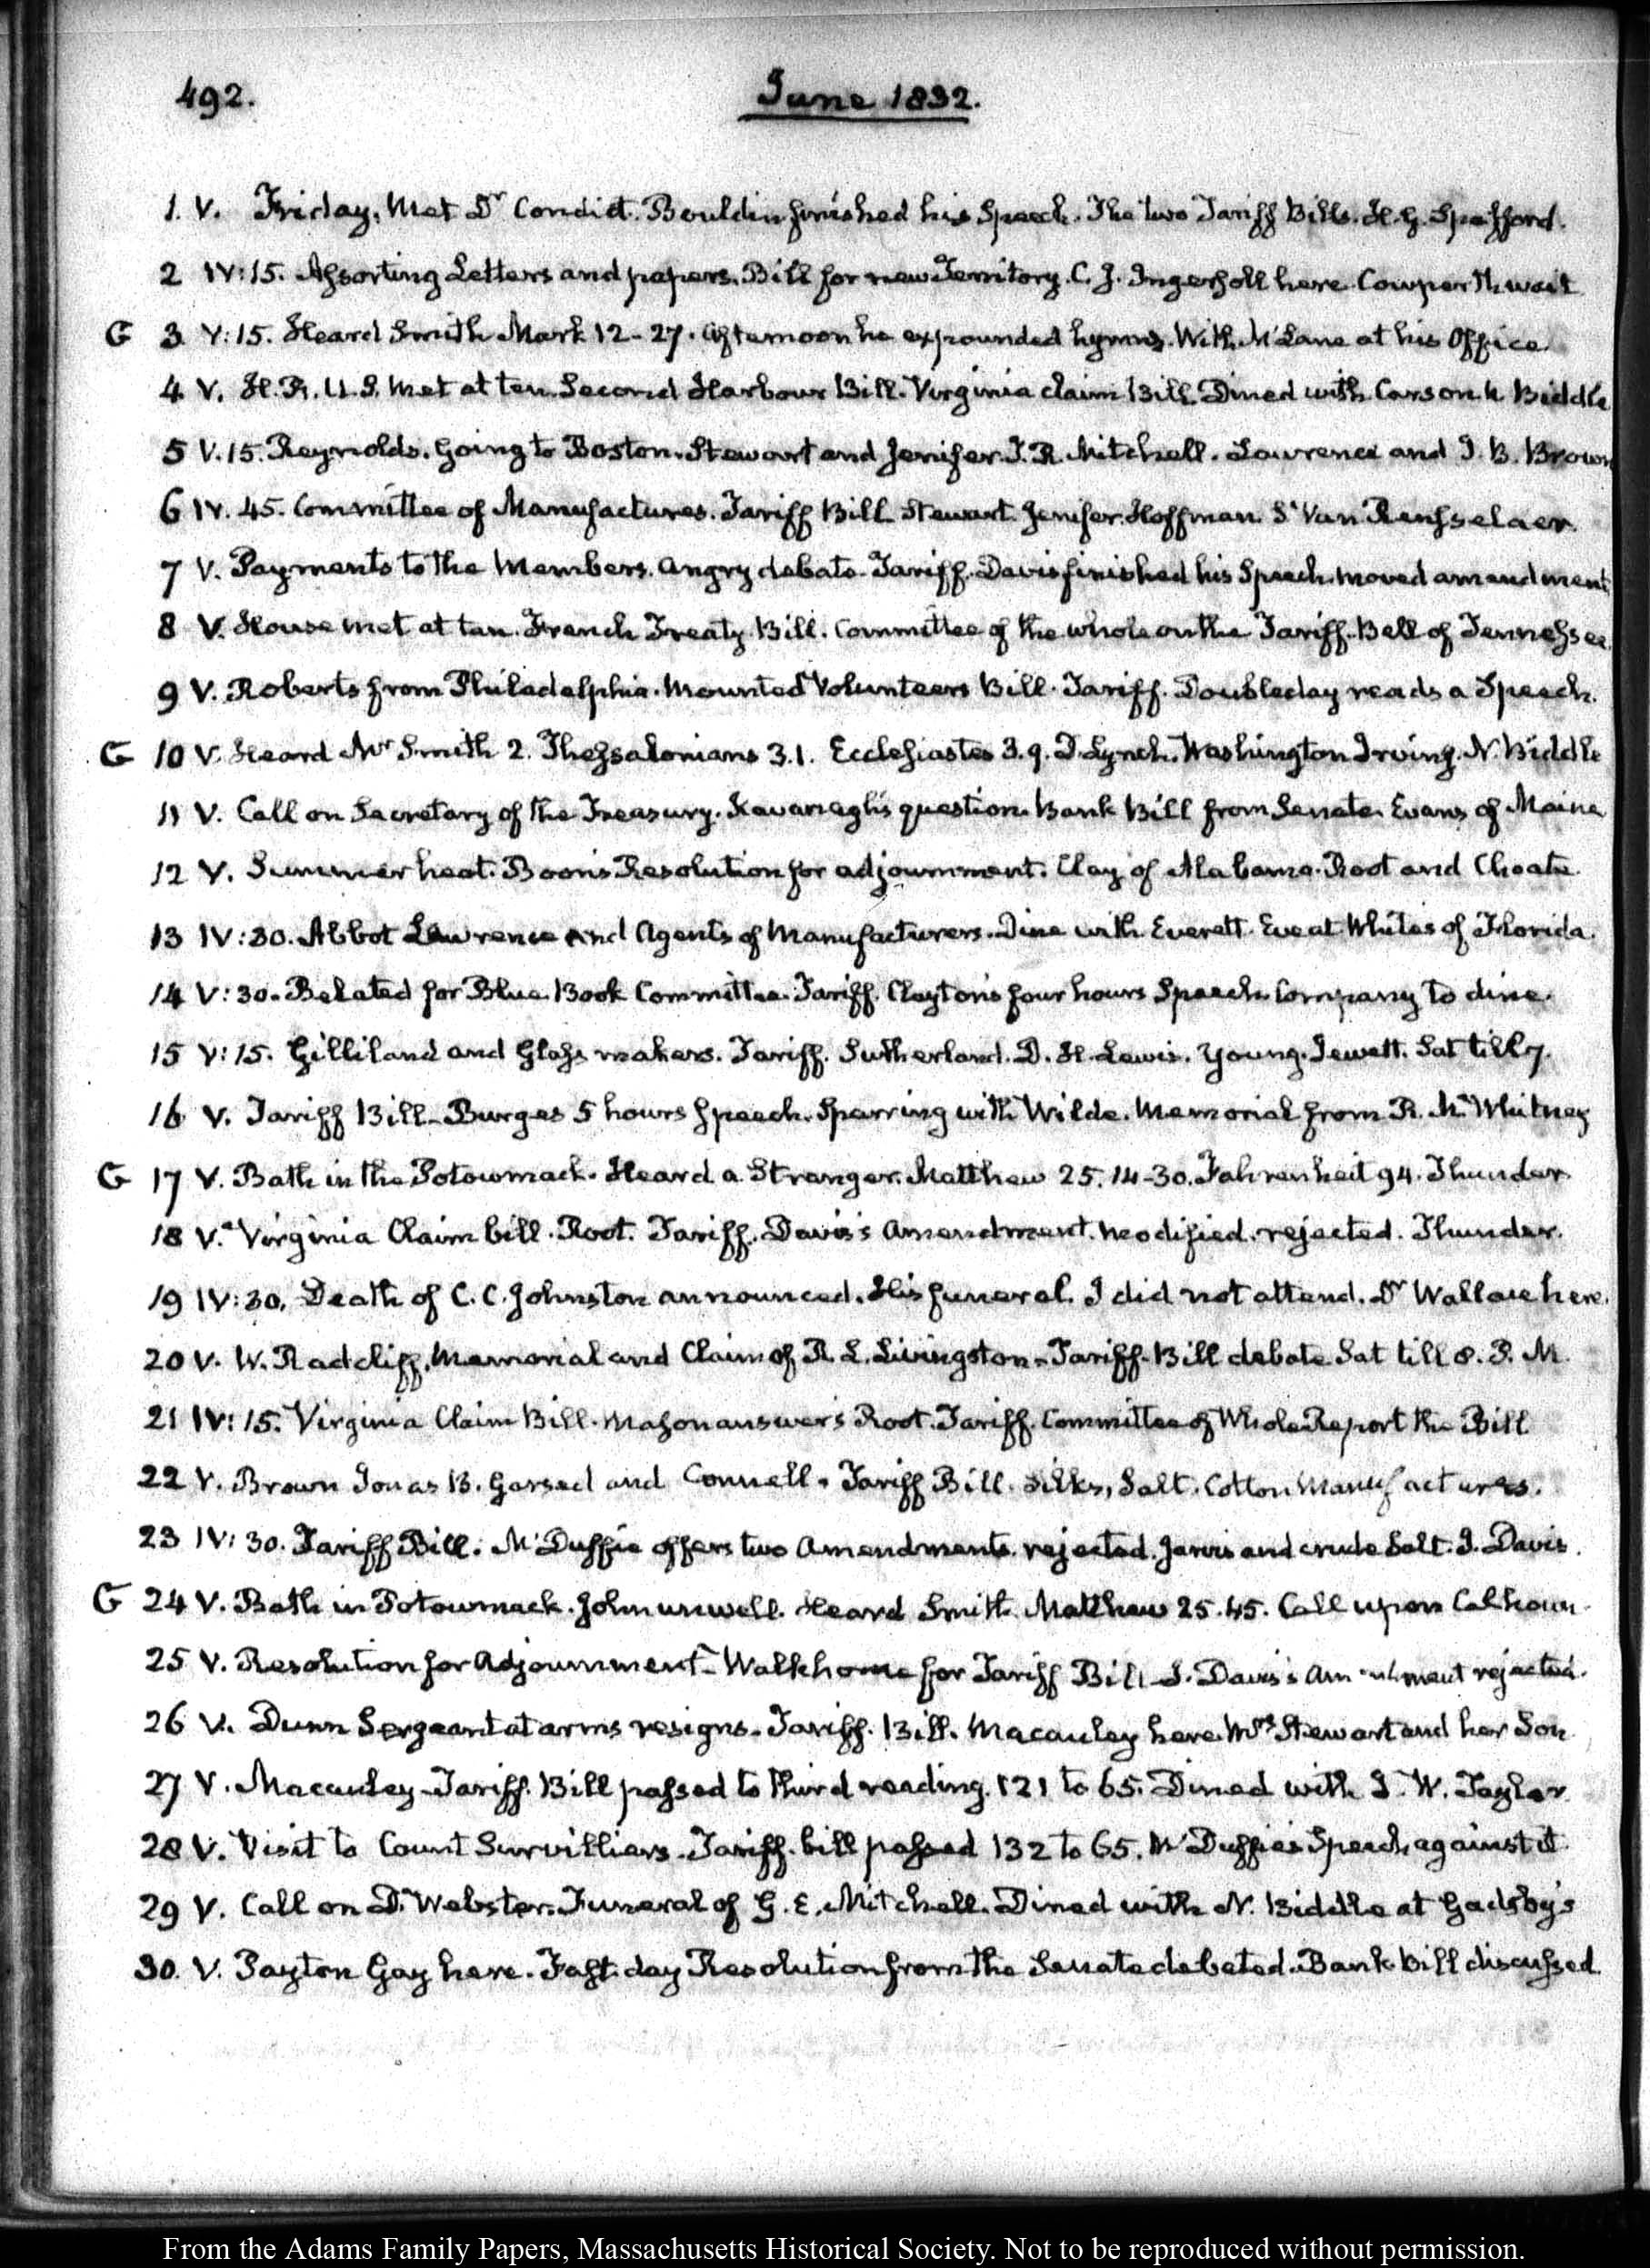 492.
June 1832.
1. V. Friday. Met Dr Condict. Bouldin finished his Speech. The two Tariff Bills. H. G. Spafford.
2 IV:15. Assorting Letters and papers. Bill for new Territory. C. J. Ingersoll here. Cowperthwait
G 3 V:15. Heard Smith Mark 12-27. Afternoon he expounded hymns. With McLane at his Office.
4 V. H.R.U.S. met at ten. Second Harbour Bill. Virginia claim Bill. Dined with Carson & Biddle
5 V.15. Reynolds. Going to Boston. Stewart and Jenifer. T. R. Mitchell. Lawrence and J. B. Brown
6 IV.45. Committee of Manufactures. Tariff Bill Stewart. Jenifer. Hoffman. S. Van Rensselaer.
7 V. Payments to the Members. Angry debate. Tariff. Davis finished his Speech. moved amendment
8 V. House met at ten. French Treaty Bill. Committee of the whole on the Tariff. Bell of Tennessee.
9 V. Roberts from Philadelphia. Mounted Volunteers Bill. Tariff. Doubleday reads a Speech.
G 10 V. Heard Mr Smith 2. Thessalonians 3.1. Ecclesiastes 3.9. D. Lynch. Washington Irving. N. Biddle
11 V. Call on Secretary of the Treasury. Kavanagh's question. Bank Bill from Senate. Evans of Maine
12 V. Summer heat. Boon's Resolution for adjournment. Clay of Alabama. Root and Choate.
13 IV:30. Abbot Lawrence and Agents of Manufacturers. Dine with Everett. Eve at White's of Florida.
14 V:30. Belated for Blue Book Committee. Tariff. Clayton's four hours Speech. Company to dine.
15 V:15. Gilliland and Glass makers. Tariff. Sutherland. D. H. Lewis. Young. Jewett. Sat till 7.
16 V. Tariff Bill. Burges 5 hours Speech. Sparring with Wilde. Memorial from R. M. Whitney
G 17 V. Bath in the Potowmack. Heard a Stranger. Matthew 25.14-30. Fahrenheit 94. Thunder
18 V. Virginia Claim bill. Root. Tariff. Davis's Amendment. modified. rejected. Thunder.
19 IV:30. Death of C. C. Johnston announced. His funeral. I did not attend. Dr Wallace here.
20 V. W. Radcliff. Memorial and Claim of R. L. Livingston. Tariff-Bill debate. Sat till 8. P. M.
21 IV:15. Virginia Claim Bill. Mason answers Root. Tariff. Committee of Whole Report the Bill
22 V. Brown Jonas B. Garsed and Connell. Tariff Bill. Silks, Salt. Cotton Manufactures.
23 IV:30. Tariff Bill. McDuffie offers two Amendments. rejected. Jarvis and crude Salt. J. Davis.
G 24 V. Bath in Potowmack. John unwell. Heard Smith. Matthew 25.45. Call upon Calhoun.
25 V. Resolution for Adjournment. Walk home for Tariff Bill. J. Davis's Amendment rejected.
26 V. Dunn Sergeant at arms resigns. Tariff. Bill. Macauley here. Mrs Stewart and her Son
27 V. Macauley. Tariff. Bill passed to third reading. 121 to 65. Dined with J. W. Taylor
28 V. Visit to Count Survilliers. Tariff. bill passed 132 to 65. McDuffie's Speech against it
29 V. Call on D. Webster. Funeral of G. E. Mitchell. Dined with N. Biddle at Gadsby's
30. V. Payton Gay here. Fast. day Resolution from the Senate debated. Bank Bill discussed.
From the Adams Family Papers, Massachusetts Historical Society. Not to be reproduced without permission.